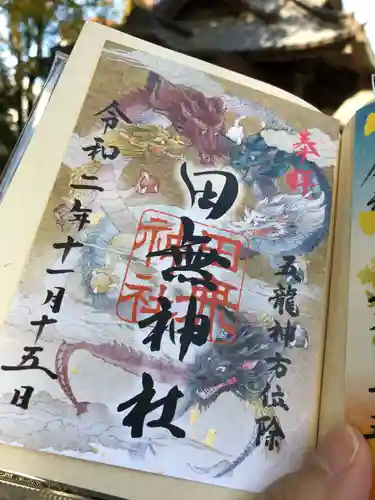 奉拝
五龍神方位除
田無神社
田無神社
令和二年十一月十五日